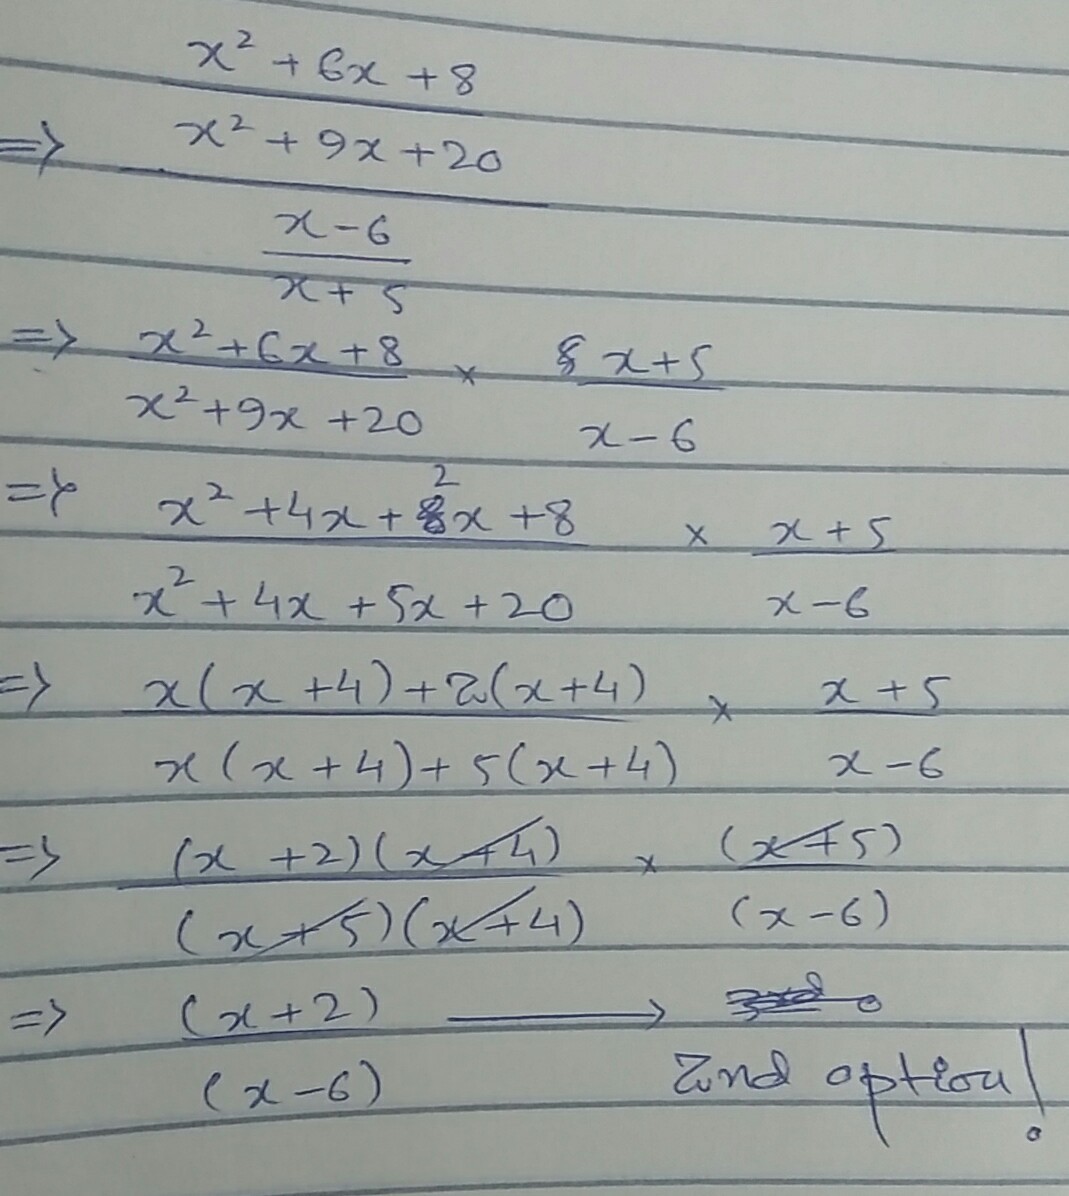 x² + 6x + 8
⇒ x² + 9x + 20
x - 6
x + 5
⇒ x² + 6x + 8 × x + 5
x² + 9x + 20 x - 6
⇒ x² + 4x + 2x + 8 × x + 5
x² + 4x + 5x + 20 x - 6
⇒ x(x + 4) + 2(x + 4) × x + 5
x(x + 4) + 5(x + 4) x - 6
⇒ (x + 2)(x + 4) × (x + 5)
(x + 5)(x + 4) (x - 6)
⇒ (x + 2) →
(x - 6) 2nd option!